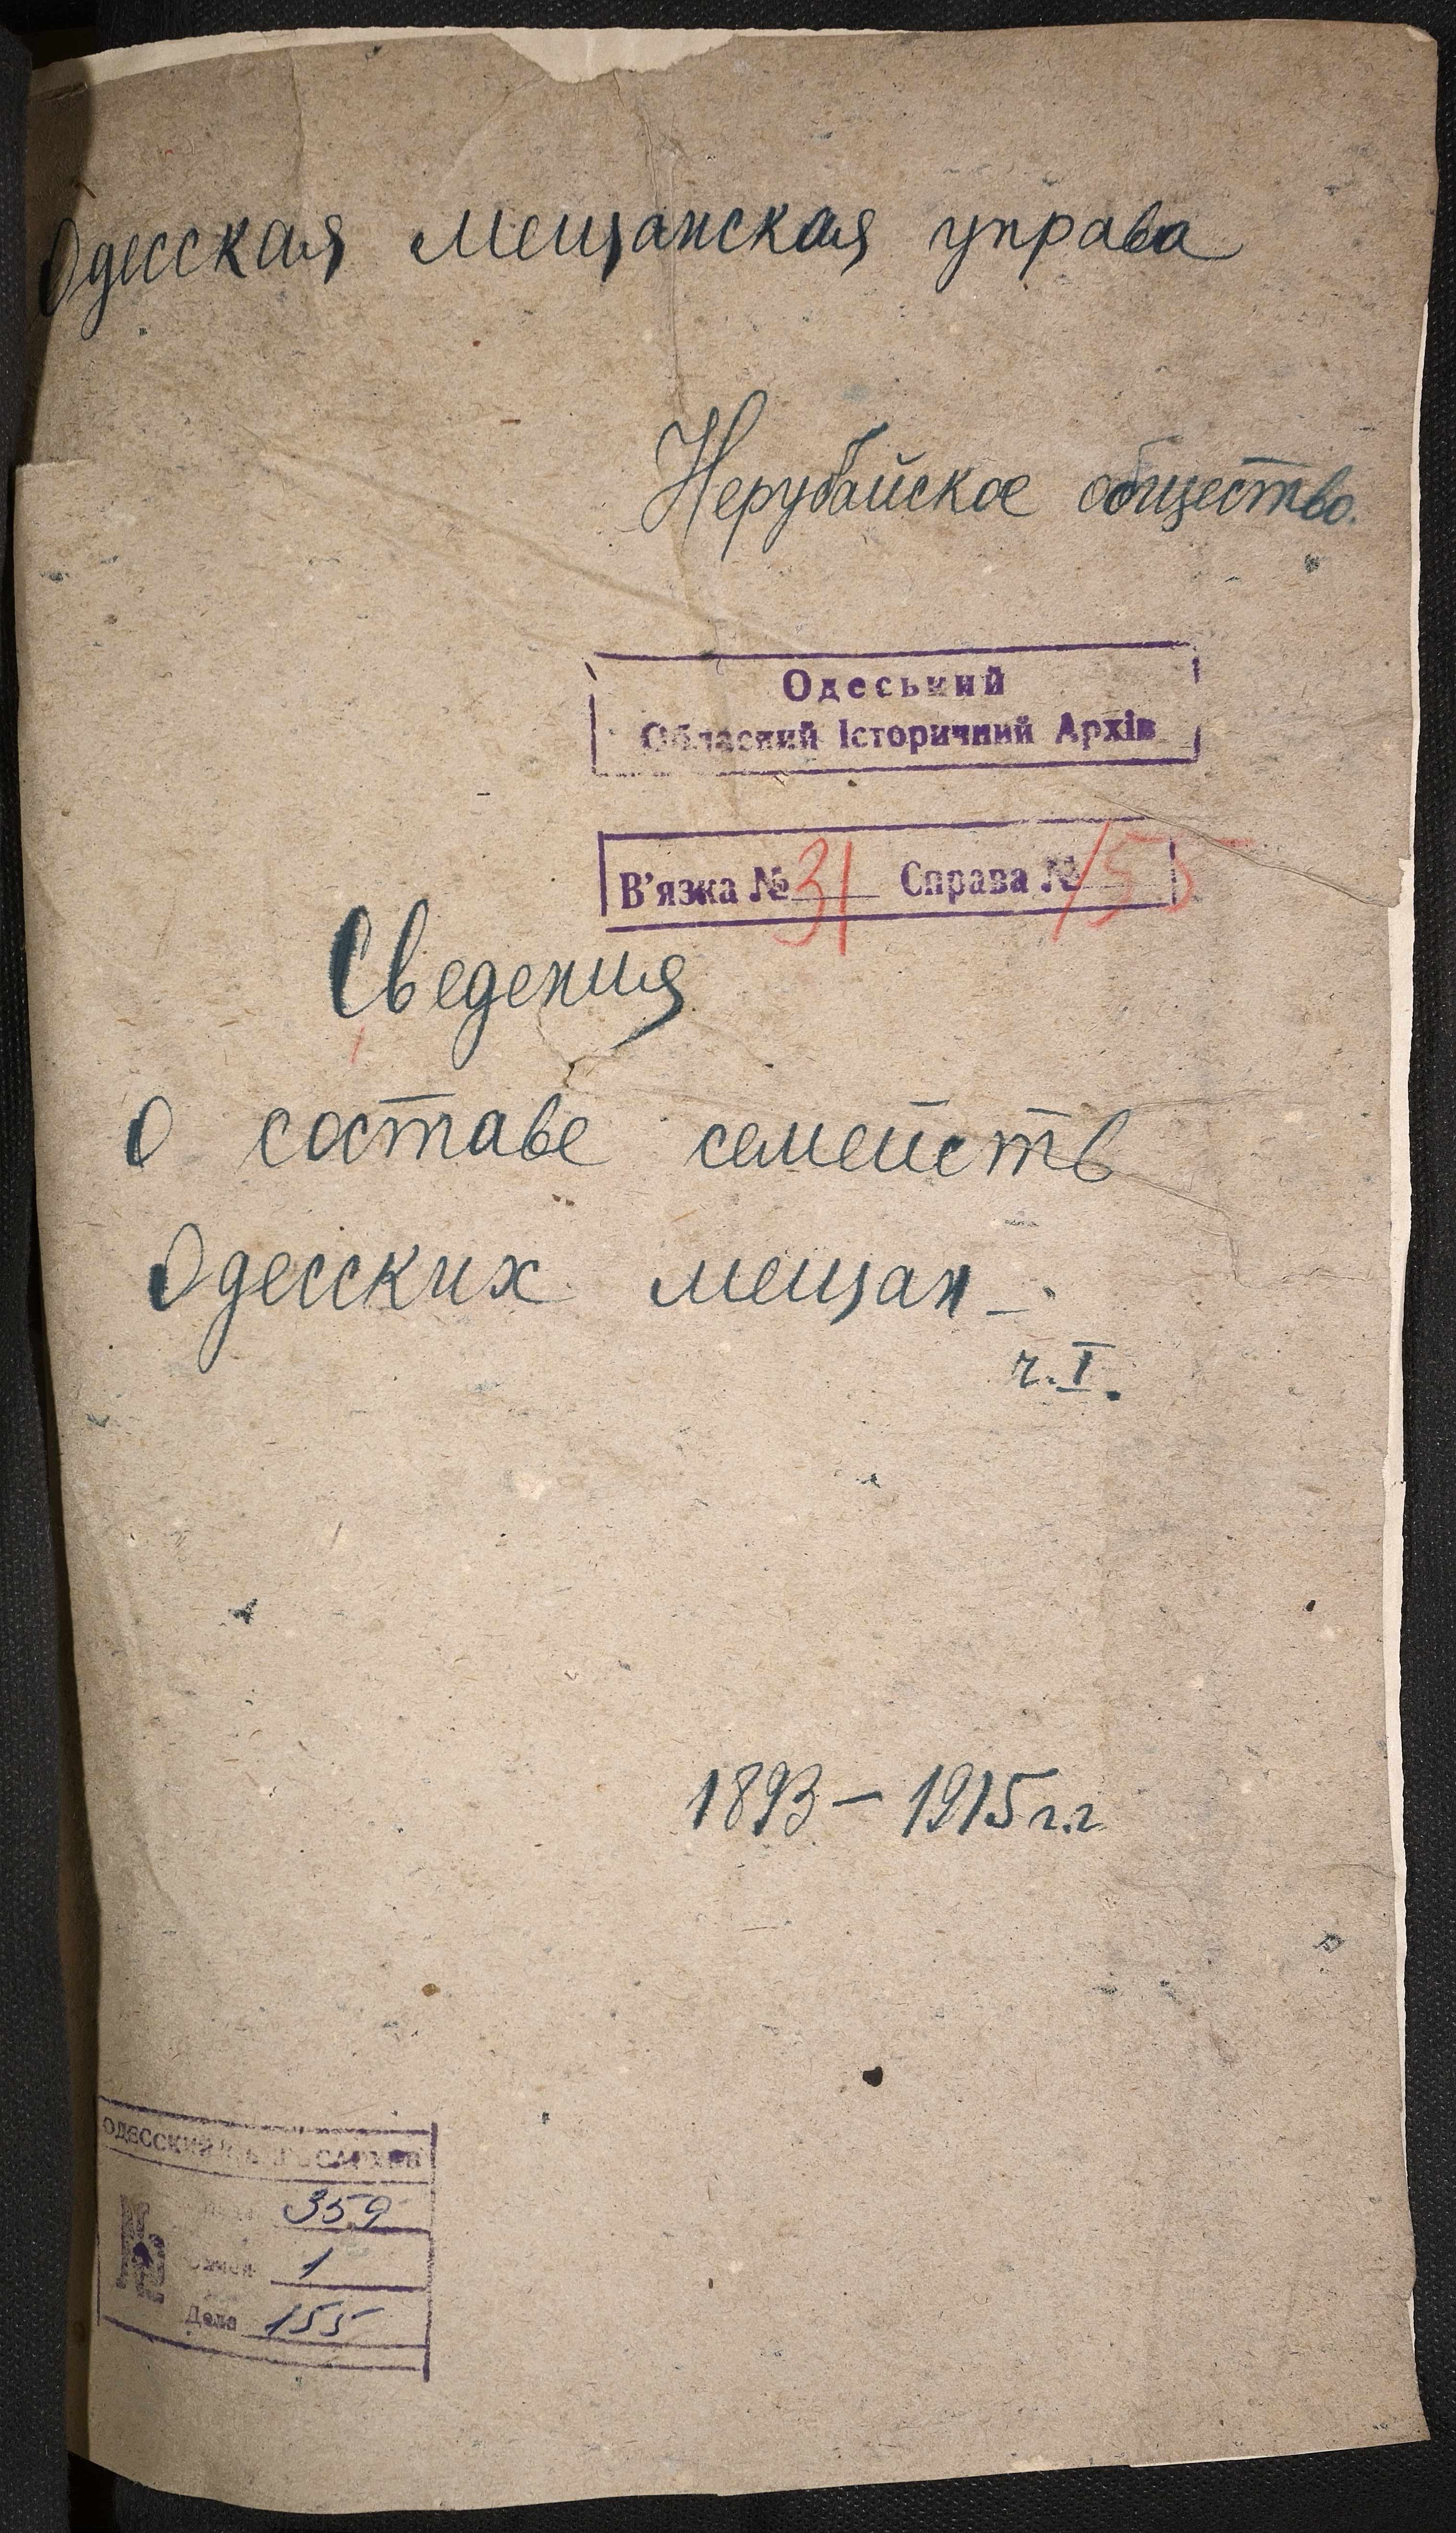 Одесская мещанская управа
Нерубайское общество.
Одеський
Обласний Історичний Архів
В'язка № 31 Справа № 155
Сведения
о составе семейств
Одесских мещан –
ч. I.
1893 – 1915 г.г
ОДЕССКИЙ
№
359
1
Дело 155